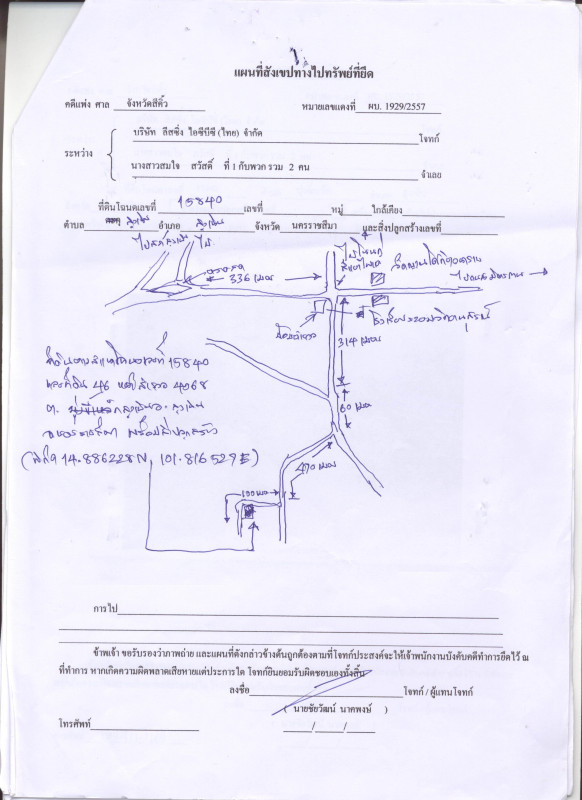 แผนที่สังเขปทางไปทรัพย์ที่ยึด
คดีแพ่ง ศาล จังหวัดสีคิ้ว หมายเลขแดงที่ ผบ. 1929/2557
บริษัท ลีสซิ่ง ไอซีบีซี (ไทย) จำกัด โจทก์
ระหว่าง
นางสาวสมใจ สวัสดิ์ ที่ 1 กับพวก รวม 2 คน จำเลย
ที่ดินโฉนดเลขที่ 15840 เลขที่ หมู่ ใกล้เคียง
ตำบล สูงเนิน อำเภอ สูงเนิน จังหวัด นครราชสีมา และสิ่งปลูกสร้างเลขที่
336 เมตร
314 เมตร
ที่ดินตามสำเนาโฉนดเลขที่ 15840
60 เมตร
เลขที่ดิน 46 หน้าสำรวจ 4968
ต. สูงเนิน อ. สูงเนิน
จ.นครราชสีมา พร้อมสิ่งปลูกสร้าง
(พิกัด 14.886228 N, 101.816529 E)
470 เมตร
100 เมตร
การไป
ข้าพเจ้า ขอรับรองว่าภาพถ่าย และแผนที่ดังกล่าวข้างต้นถูกต้องตามที่โจทก์ประสงค์จะให้เจ้าพนักงานบังคับคดีทำการยึดไว้ ณ
ที่ทำการ หากเกิดความผิดพลาดเสียหายแต่ประการใด โจทก์ยินยอมรับผิดชอบเองทั้งสิ้น
ลงชื่อ โจทก์ / ผู้แทนโจทก์
( นายชัยวัฒน์ นาคพงษ์ )
โทรศัพท์ / /